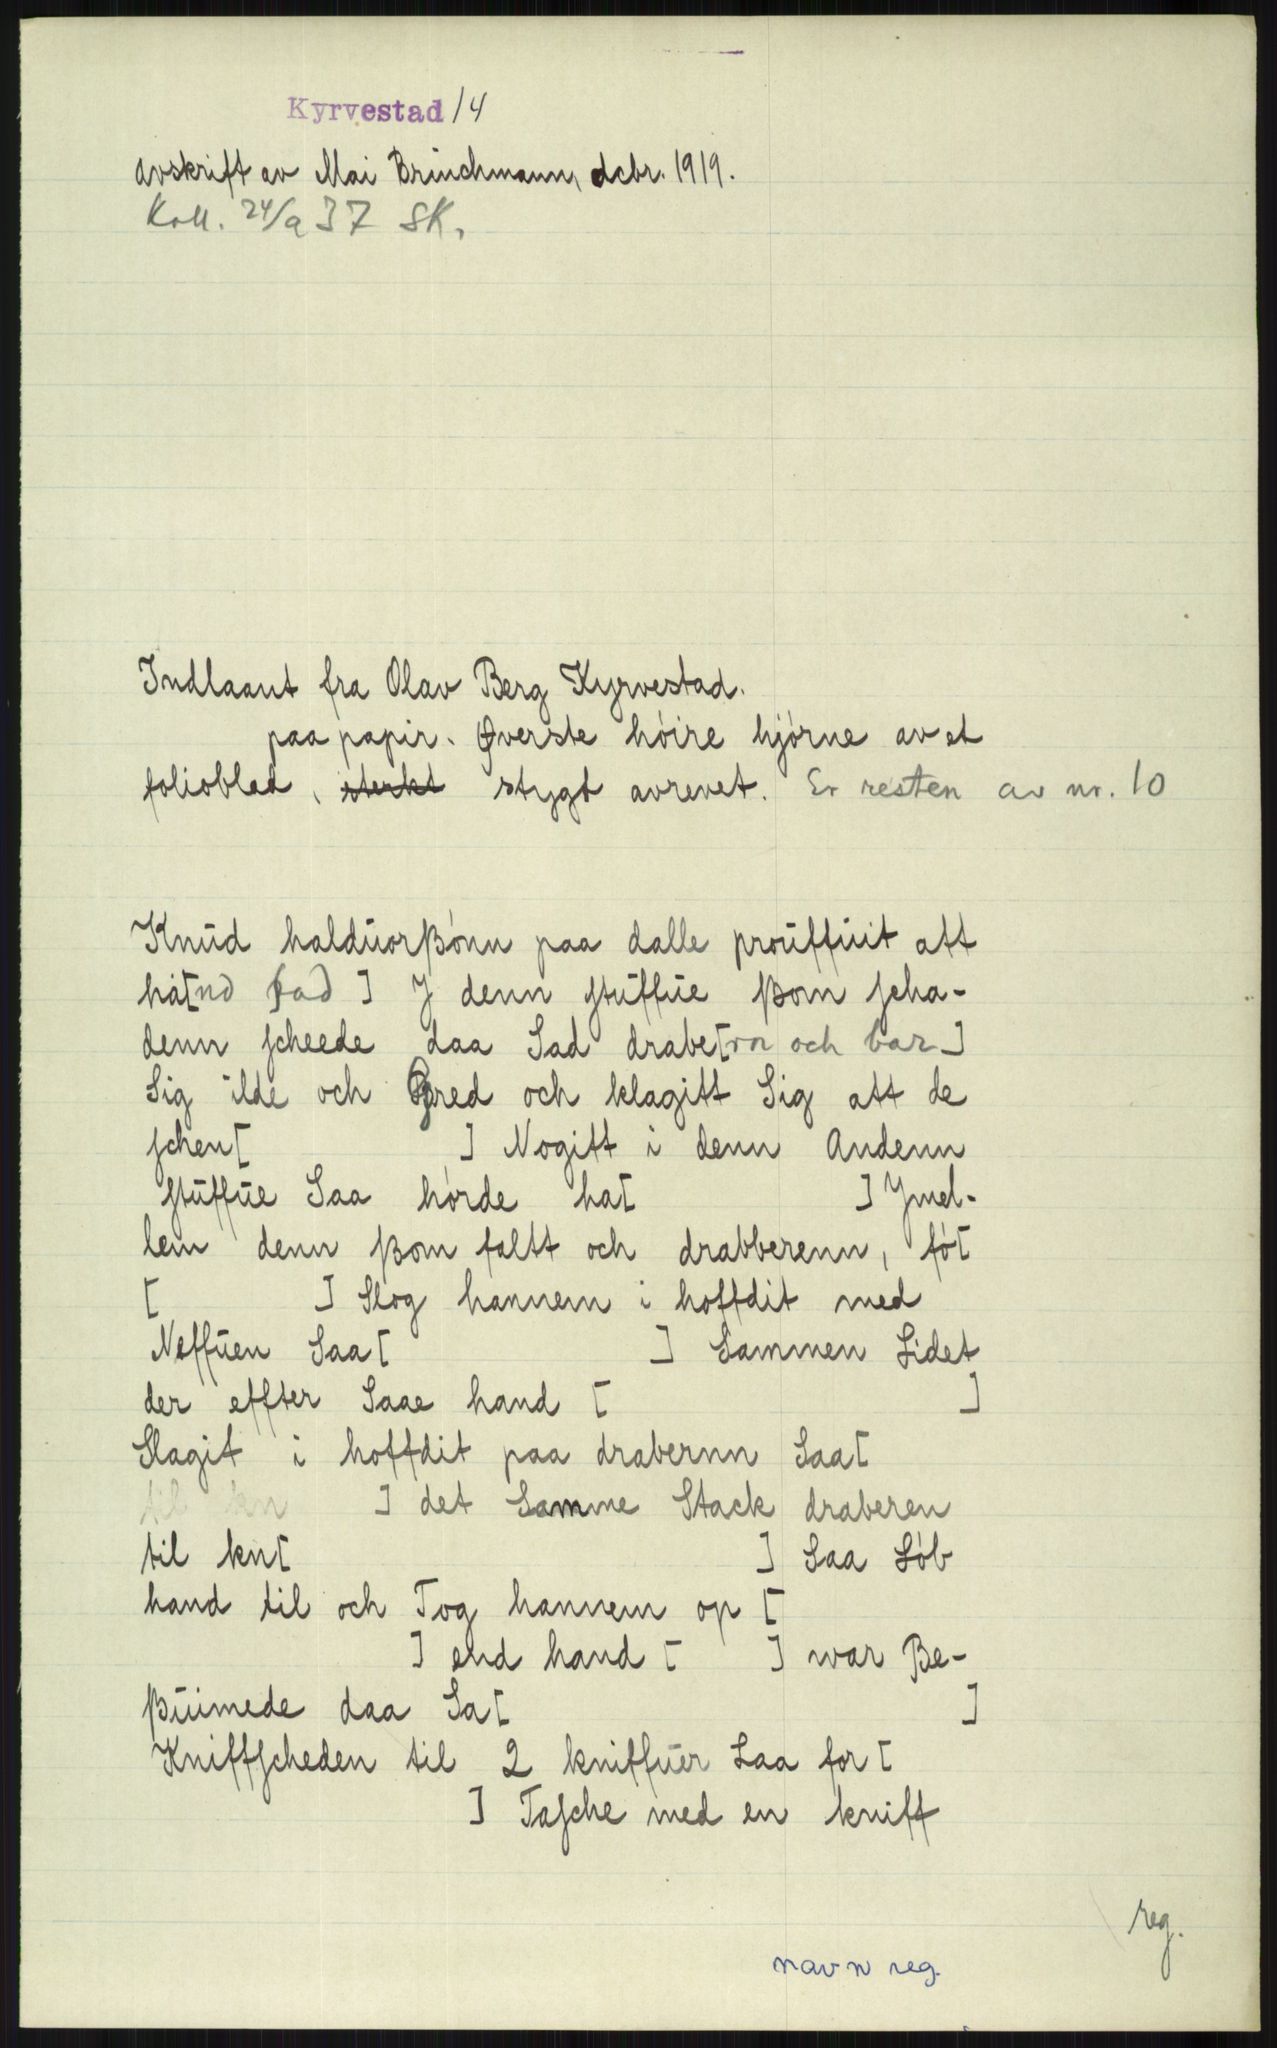 Kyrvestad/4
avskrift av Mai Brinchmann, dcbr. 1919.
Koll. 24/9 37 SK.
Indlaant fra Olav Berg Kyrvestad.
paa papir. Øverste høire hjørne av et
folioblad, sterkt stygt avrevet. Er resten av nr. 10
Knŭd haldŭorßónn paa dalle proŭffŭit att
hå[nd sad ] J denn stŭffŭe ßom scha-
denn scheede daa Sad drabe[rn och bar]
Sig ilde och Gred och klagitt Sig att de
schen[ ] Nogitt i denn Andenn
stŭffŭe Saa hórde ha[ ] Jmel-
lem denn ßom faltt och drabberenn, fó[
[ ] Slog hannem i hoffdit med
Neffŭen Saa[ ] Sammen Lidet
der effter Saae hand [ ]
Slagit i hoffdit paa drabernn Saa[
til kn ] det Samme Stack draberen
til kn[ ] Saa Lób
hand til och Tog hannem op [
] end hand [ ] war Be-
ßŭimede daa Sa[ ]
Kniffscheden til 2 kniffŭer Laa for[
] Tasche med en kniff
reg.
navn reg.